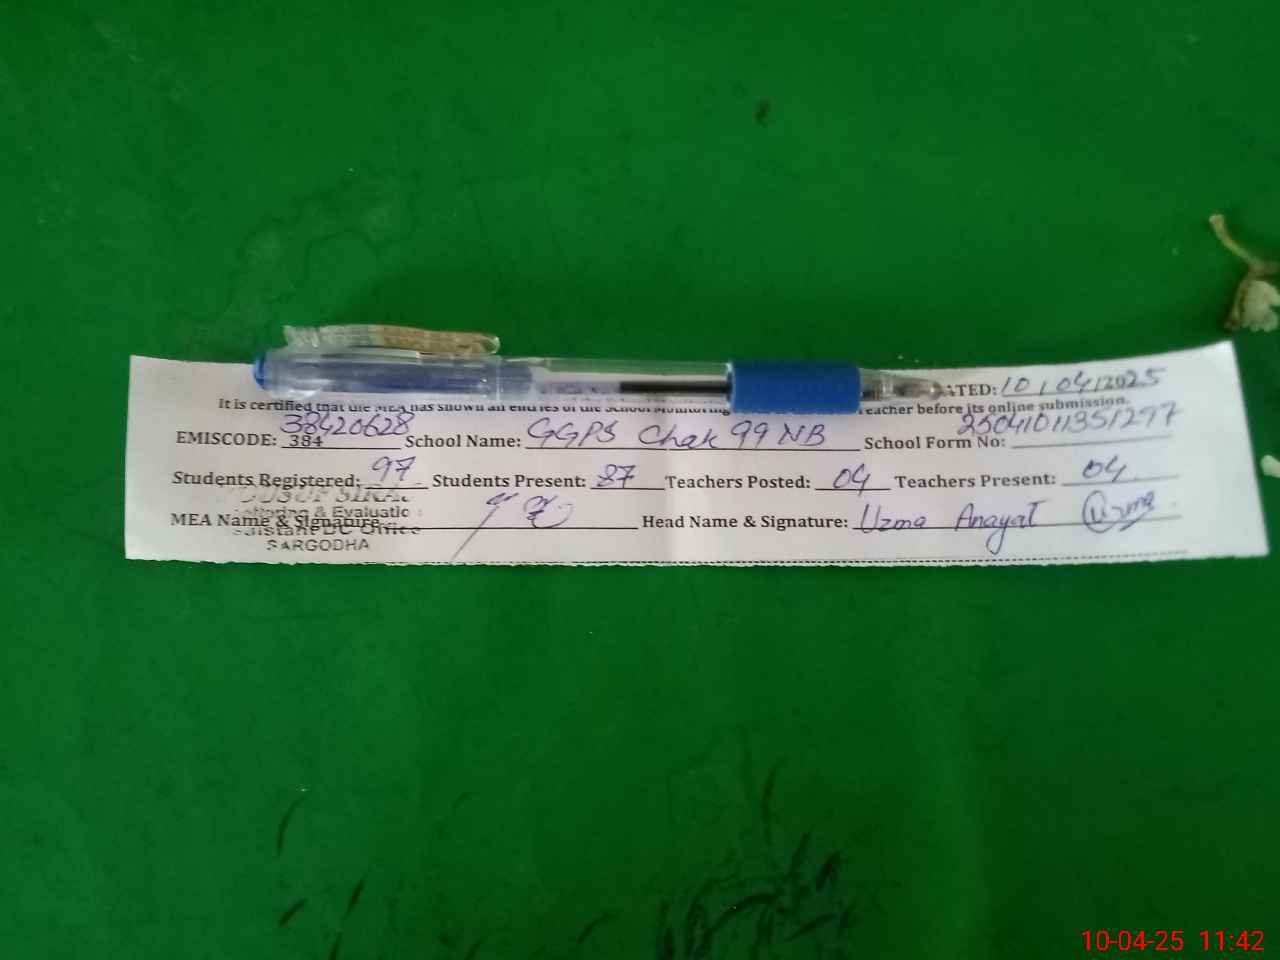 ATED: 10/04/2025
It is certified that the MEA has shown all entries of the School Monitoring eacher before its online submission.
EMISCODE: 384 38420628 School Name: GGPS Chak 99 NB School Form No: 25041011351297
Students Registered: 97 Students Present: 87 Teachers Posted: 04 Teachers Present: 04
MEA Name & Signature Head Name & Signature: Uzma Anayat Uzma
& Evaluatic
DC Office
SARGODHA
10-04-25 11:42